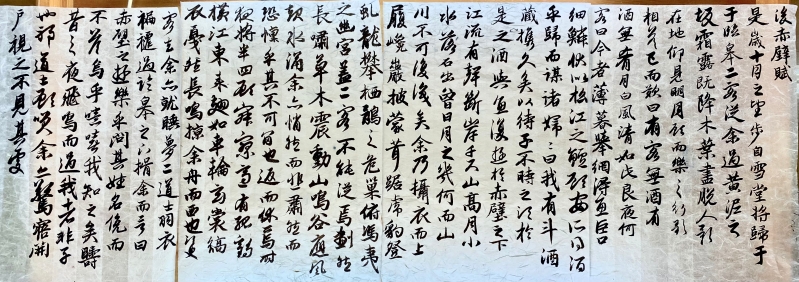 後赤壁賦
是歲十月之望步自雪堂將歸于
于臨皋二客從余過黃泥之
坂霜露既降木葉盡脫人影
在地仰見明月顧而樂之行歌
相答已而歎曰有客無酒有
酒無肴月白風清如此良夜何
客曰今者薄暮舉網得魚巨口
細鱗狀如松江之鱸顧安所得酒
乎歸而謀諸婦婦曰我有斗酒
藏攜久矣以待子不時之須於
是之酒與魚復遊於赤壁之下
江流有聲斷岸千尺山高月小
水落石出曾日月之幾何而山
川不可復識矣余乃攝衣而上
履巉巖披蒙茸踞虎豹登
虬龍攀栖鶻之危巢俯馮夷
之幽宮蓋二客不能從焉劃然
長嘯草木震動山鳴谷應風
起水涌余亦悄然而悲肅然而
恐凜乎其不可留也返而休焉時
夜將半四顧寂寥適有孤鶴
橫江東來翅如車輪玄裳縞
衣戛然長鳴掠余舟而西也須臾
客去余亦就睡夢二道士羽衣
蹁躚過臨皋之下揖余而言曰
赤壁之遊樂乎問其姓名俛而
不答嗚呼噫嘻我知之矣疇
昔之夜飛鳴而過我者非子
也邪道士顧笑余亦驚寤開
戶視之不見其處